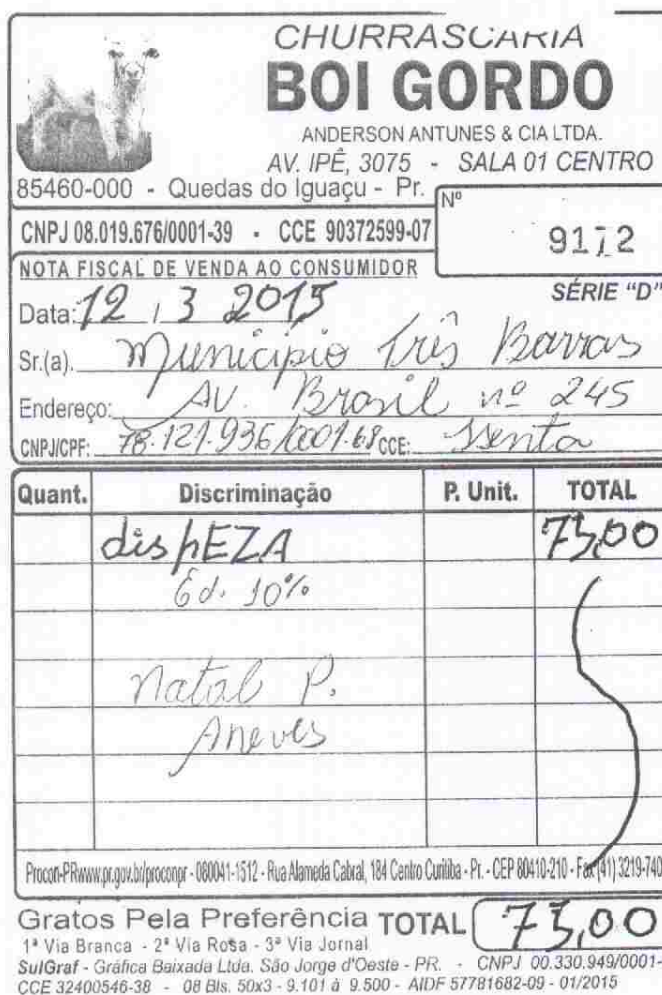 CHURRASCARIA
BOI GORDO
ANDERSON ANTUNES & CIA LTDA.
AV. IPÊ, 3075 - SALA 01 CENTRO
85460-000 - Quedas do Iguaçu - Pr.
CNPJ 08.019.676/0001-39 - CCE 90372599-07
Nº 9172
NOTA FISCAL DE VENDA AO CONSUMIDOR
SÉRIE "D"
Data: 12 / 3 2015
Sr.(a). Município Três Barras
Endereço: AV. Brasil nº 245
CNPJ/CPF: 78.121.936/0001.68 CCE: Isenta
Quant. Discriminação P. Unit. TOTAL
dispEZA 75,00
10%
Natal P.
Procon-PRwww.pr.gov.br/proconpr - 080041-1512 - Rua Alameda Cabral, 184 Centro Curitiba - Pr. - CEP 80410-210 - Fax (41) 3219-740
Gratos Pela Preferência TOTAL 75,00
1ª Via Branca - 2ª Via Rosa - 3ª Via Jornal
SulGraf - Gráfica Baixada Ltda. São Jorge d'Oeste - PR. - CNPJ 00.330.949/0001-
CCE 32400546-38 - 08 Bls. 50x3 - 9.101 à 9.500 - AIDF 57781682-09 - 01/2015